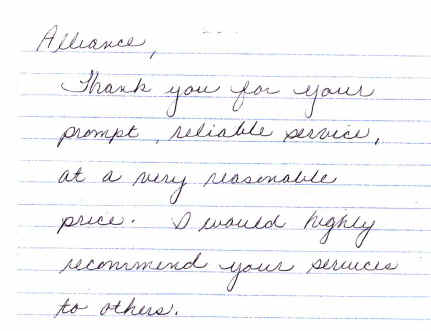 Alliance,
Thank you for your
prompt, reliable service,
at a very reasonable
price. I would highly
recommend your services
to others.